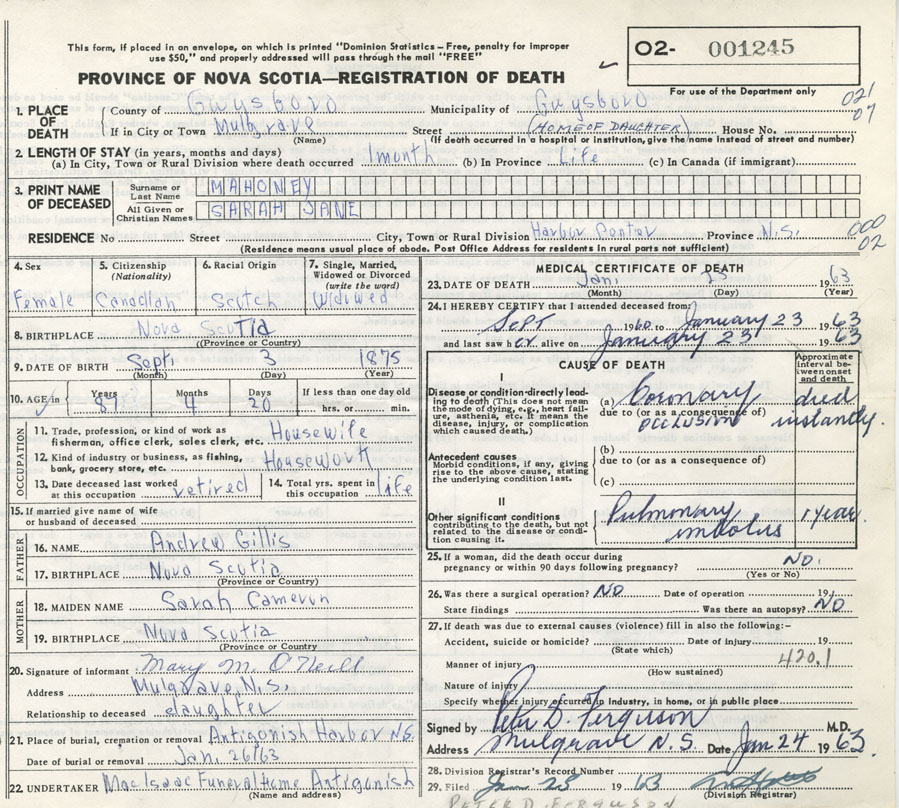 This form, if placed in an envelope, on which is printed "Dominion Statistics—Free, penalty for improper
use $50," and properly addressed will pass through the mail "FREE"
O2- 001245
PROVINCE OF NOVA SCOTIA—REGISTRATION OF DEATH
For use of the Department only
021
07
1. PLACE OF DEATH
County of Guysboro Municipality of Guysboro
If in City or Town Mulgrave Street (HOME OF DAUGHTER) House No.
(Name) (If death occurred in a hospital or institution, give the name instead of street and number)
2. LENGTH OF STAY (in years, months and days)
(a) In City, Town or Rural Division where death occurred 1 month (b) In Province Life (c) In Canada (if immigrant)
3. PRINT NAME OF DECEASED
Surname or Last Name MAHONEY
All Given or Christian Names SARAH JANE
RESIDENCE No Street City, Town or Rural Division Harbor Center Province N.S.
000
02
(Residence means usual place of abode. Post Office Address for residents in rural parts not sufficient)
4. Sex Female
5. Citizenship (Nationality) Canadian
6. Racial Origin Scotch
7. Single, Married, Widowed or Divorced (write the word) Widowed
8. BIRTHPLACE Nova Scotia
(Province or Country)
9. DATE OF BIRTH Sept. 3 1875
(Month) (Day) (Year)
10. AGE in Years Months Days If less than one day old
87 4 20 hrs. or min.
OCCUPATION
11. Trade, profession, or kind of work as
fisherman, office clerk, sales clerk, etc. Housewife
12. Kind of industry or business, as fishing,
bank, grocery store, etc. Housework
13. Date deceased last worked
at this occupation retired
14. Total yrs. spent in
this occupation life
15. If married give name of wife
or husband of deceased
FATHER
16. NAME Andrew Gillis
17. BIRTHPLACE Nova Scotia
(Province or Country)
MOTHER
18. MAIDEN NAME Sarah Cameron
19. BIRTHPLACE Nova Scotia
(Province or Country
20. Signature of informant Mary M. O'Neill
Address Mulgrave, N.S.
Relationship to deceased daughter
21. Place of burial, cremation or removal Antigonish Harbor N.S.
Date of burial or removal Jan. 26/63
22. UNDERTAKER MacIsaac Funeral Home Antigonish
(Name and address)
MEDICAL CERTIFICATE OF DEATH
23. DATE OF DEATH Jan. 23 1963
(Month) (Day) (Year)
24. I HEREBY CERTIFY that I attended deceased from:
Sept 1960 to January 23 1963
and last saw her alive on January 23 1963
CAUSE OF DEATH
Approximate interval between onset and death
I
Disease or condition directly leading to death (This does not mean the mode of dying, e.g., heart failure, asthenia, etc. It means the disease, injury, or complication which caused death.)
(a) Coronary died
due to (or as a consequence of)
occlusion instantly.
Antecedent causes
Morbid conditions, if any, giving rise to the above cause, stating the underlying condition last.
(b)
due to (or as a consequence of)
(c)
II
Other significant conditions
contributing to the death, but not related to the disease or condition causing it.
Pulmonary 1 year.
embolus
25. If a woman, did the death occur during
pregnancy or within 90 days following pregnancy? NO.
(Yes or No)
26. Was there a surgical operation? NO Date of operation 19
State findings Was there an autopsy? NO
27. If death was due to external causes (violence) fill in also the following:—
Accident, suicide or homicide? Date of injury 19
(State which)
420.1
Manner of injury
(How sustained)
Nature of injury
Specify whether injury occurred in Industry, in home, or in public place
Signed by Peter D. Ferguson M.D.
Address Mulgrave N.S. Date Jan 24 1963.
28. Division Registrar's Record Number
29. Filed Jan 28 1963
(Division Registrar)
PETER D. FERGUSON